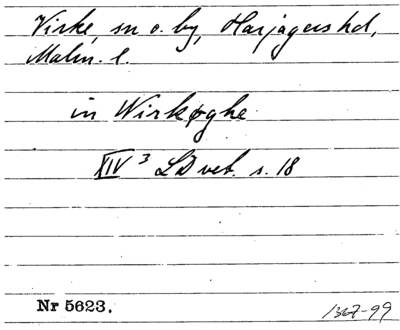 Virke, sn o. by, Harjagers hd,
Malm. l.
in Wirkøghe
XIV 3 LD vet. s. 18
Nr 5623.
1367-99